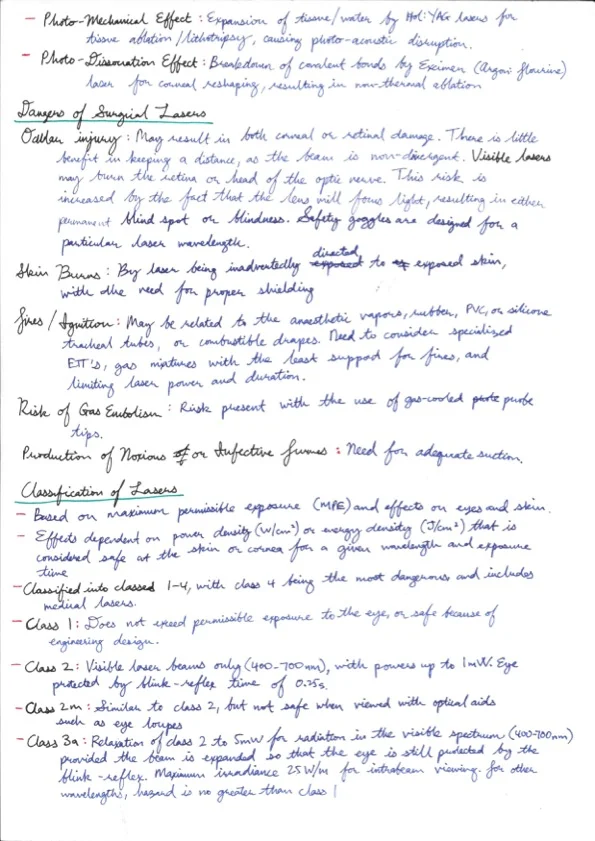 - Photo-Mechanical Effect : Expansion of tissue/water by Hol:YAG lasers for
tissue ablation/lithotripsy, causing photo-acoustic disruption.
- Photo-Dissociation Effect : Breakdown of covalent bonds by Excimer (Argon: flourine)
laser for corneal reshaping, resulting in non-thermal ablation
Dangers of Surgical Lasers
Occular injury : May result in both corneal or retinal damage. There is little
benefit in keeping a distance, as the beam is non-divergent. Visible lasers
may burn the retina or head of the optic nerve. This risk is
increased by the fact that the lens will focus light, resulting in either
permanent blind spot or blindness. Safety goggles are designed for a
particular laser wavelength.
Skin Burns : By laser being inadvertedly directed to exposed skin,
with the need for proper shielding
Fires / Ignition : May be related to the anaesthetic vapors, rubber, PVC, or silicone
tracheal tubes, or combustible drapes. Need to consider specialised
ETT's, gas mixtures with the least support for fires, and
limiting laser power and duration.
Risk of Gas Embolism : Risk present with the use of gas-cooled probe
tips.
Production of Noxious or Infective fumes : Need for adequate suction.
Classification of Lasers
- Based on maximum permissible exposure (MPE) and effects on eyes and skin.
- Effects dependent on power density (W/cm²) or energy density (J/cm²) that is
considered safe at the skin or cornea for a given wavelength and exposure
time
- Classified into classed 1-4, with class 4 being the most dangerous and includes
medical lasers.
- Class 1 : Does not exeed permissible exposure to the eye, or safe because of
engineering design.
- Class 2 : Visible laser beams only (400-700nm), with powers up to 1mW. Eye
protected by blink-reflex time of 0.25s.
- Class 2m : Similar to class 2, but not safe when viewed with optical aids
such as eye loupes
- Class 3a : Relaxation of class 2 to 5mW for radiation in the visible spectrum (400-700nm)
provided the beam is expanded so that the eye is still protected by the
blink-reflex. Maximum irradiance 25W/m for intrabeam viewing. For other
wavelengths, hazard is no greater than class 1